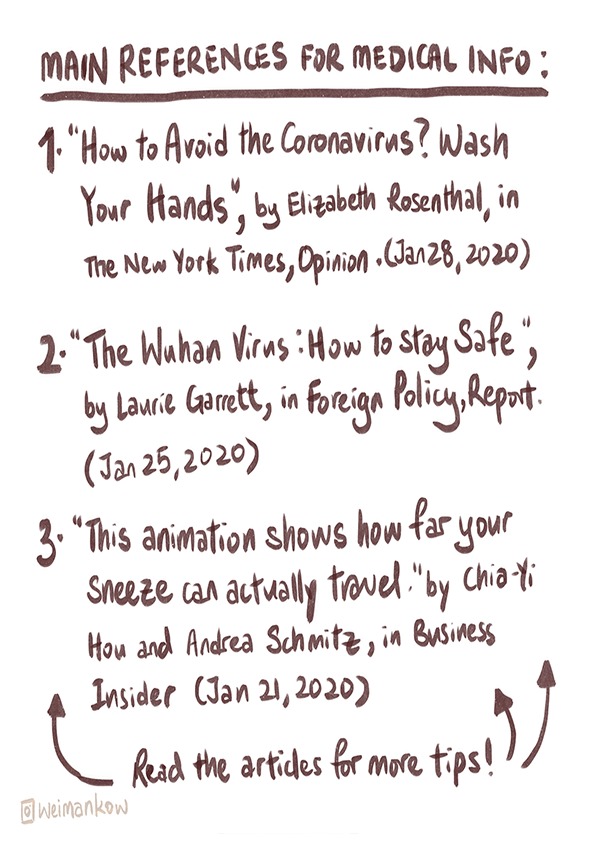 MAIN REFERENCES FOR MEDICAL INFO:
1. "How to Avoid the Coronavirus? Wash
Your Hands", by Elizabeth Rosenthal, in
The New York Times, Opinion. (Jan 28, 2020)
2. "The Wuhan Virus: How to stay Safe",
by Laurie Garrett, in Foreign Policy, Report.
(Jan 25, 2020)
3. "This animation shows how far your
Sneeze can actually travel." by Chia-Yi
Hou and Andrea Schmitz, in Business
Insider (Jan 21, 2020)
Read the articles for more tips!
weimankow